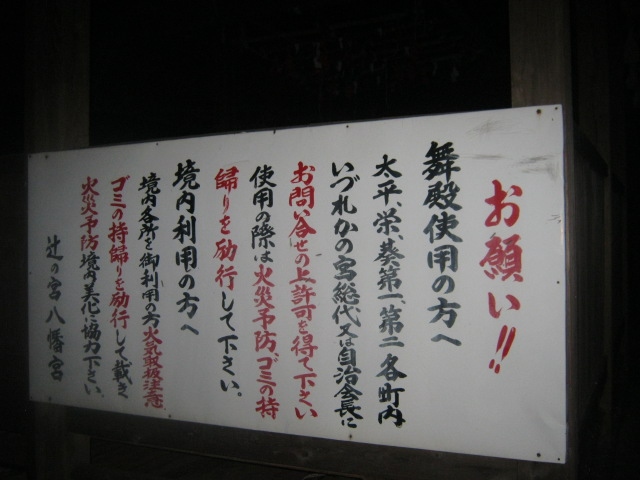 お願い!!
舞殿使用の方へ
太平、栄、葵第一、第二各町内
いづれかの宮総代又は自治会長に
お問い合せの上許可を得て下さい
使用の際は火災予防、ゴミの持
帰りを励行して下さい。
境内利用の方へ
境内各所を御利用の方火気取扱注意
ゴミの持帰りを励行して戴き
火災予防境内美化に協力下さい。
辻の宮八幡宮